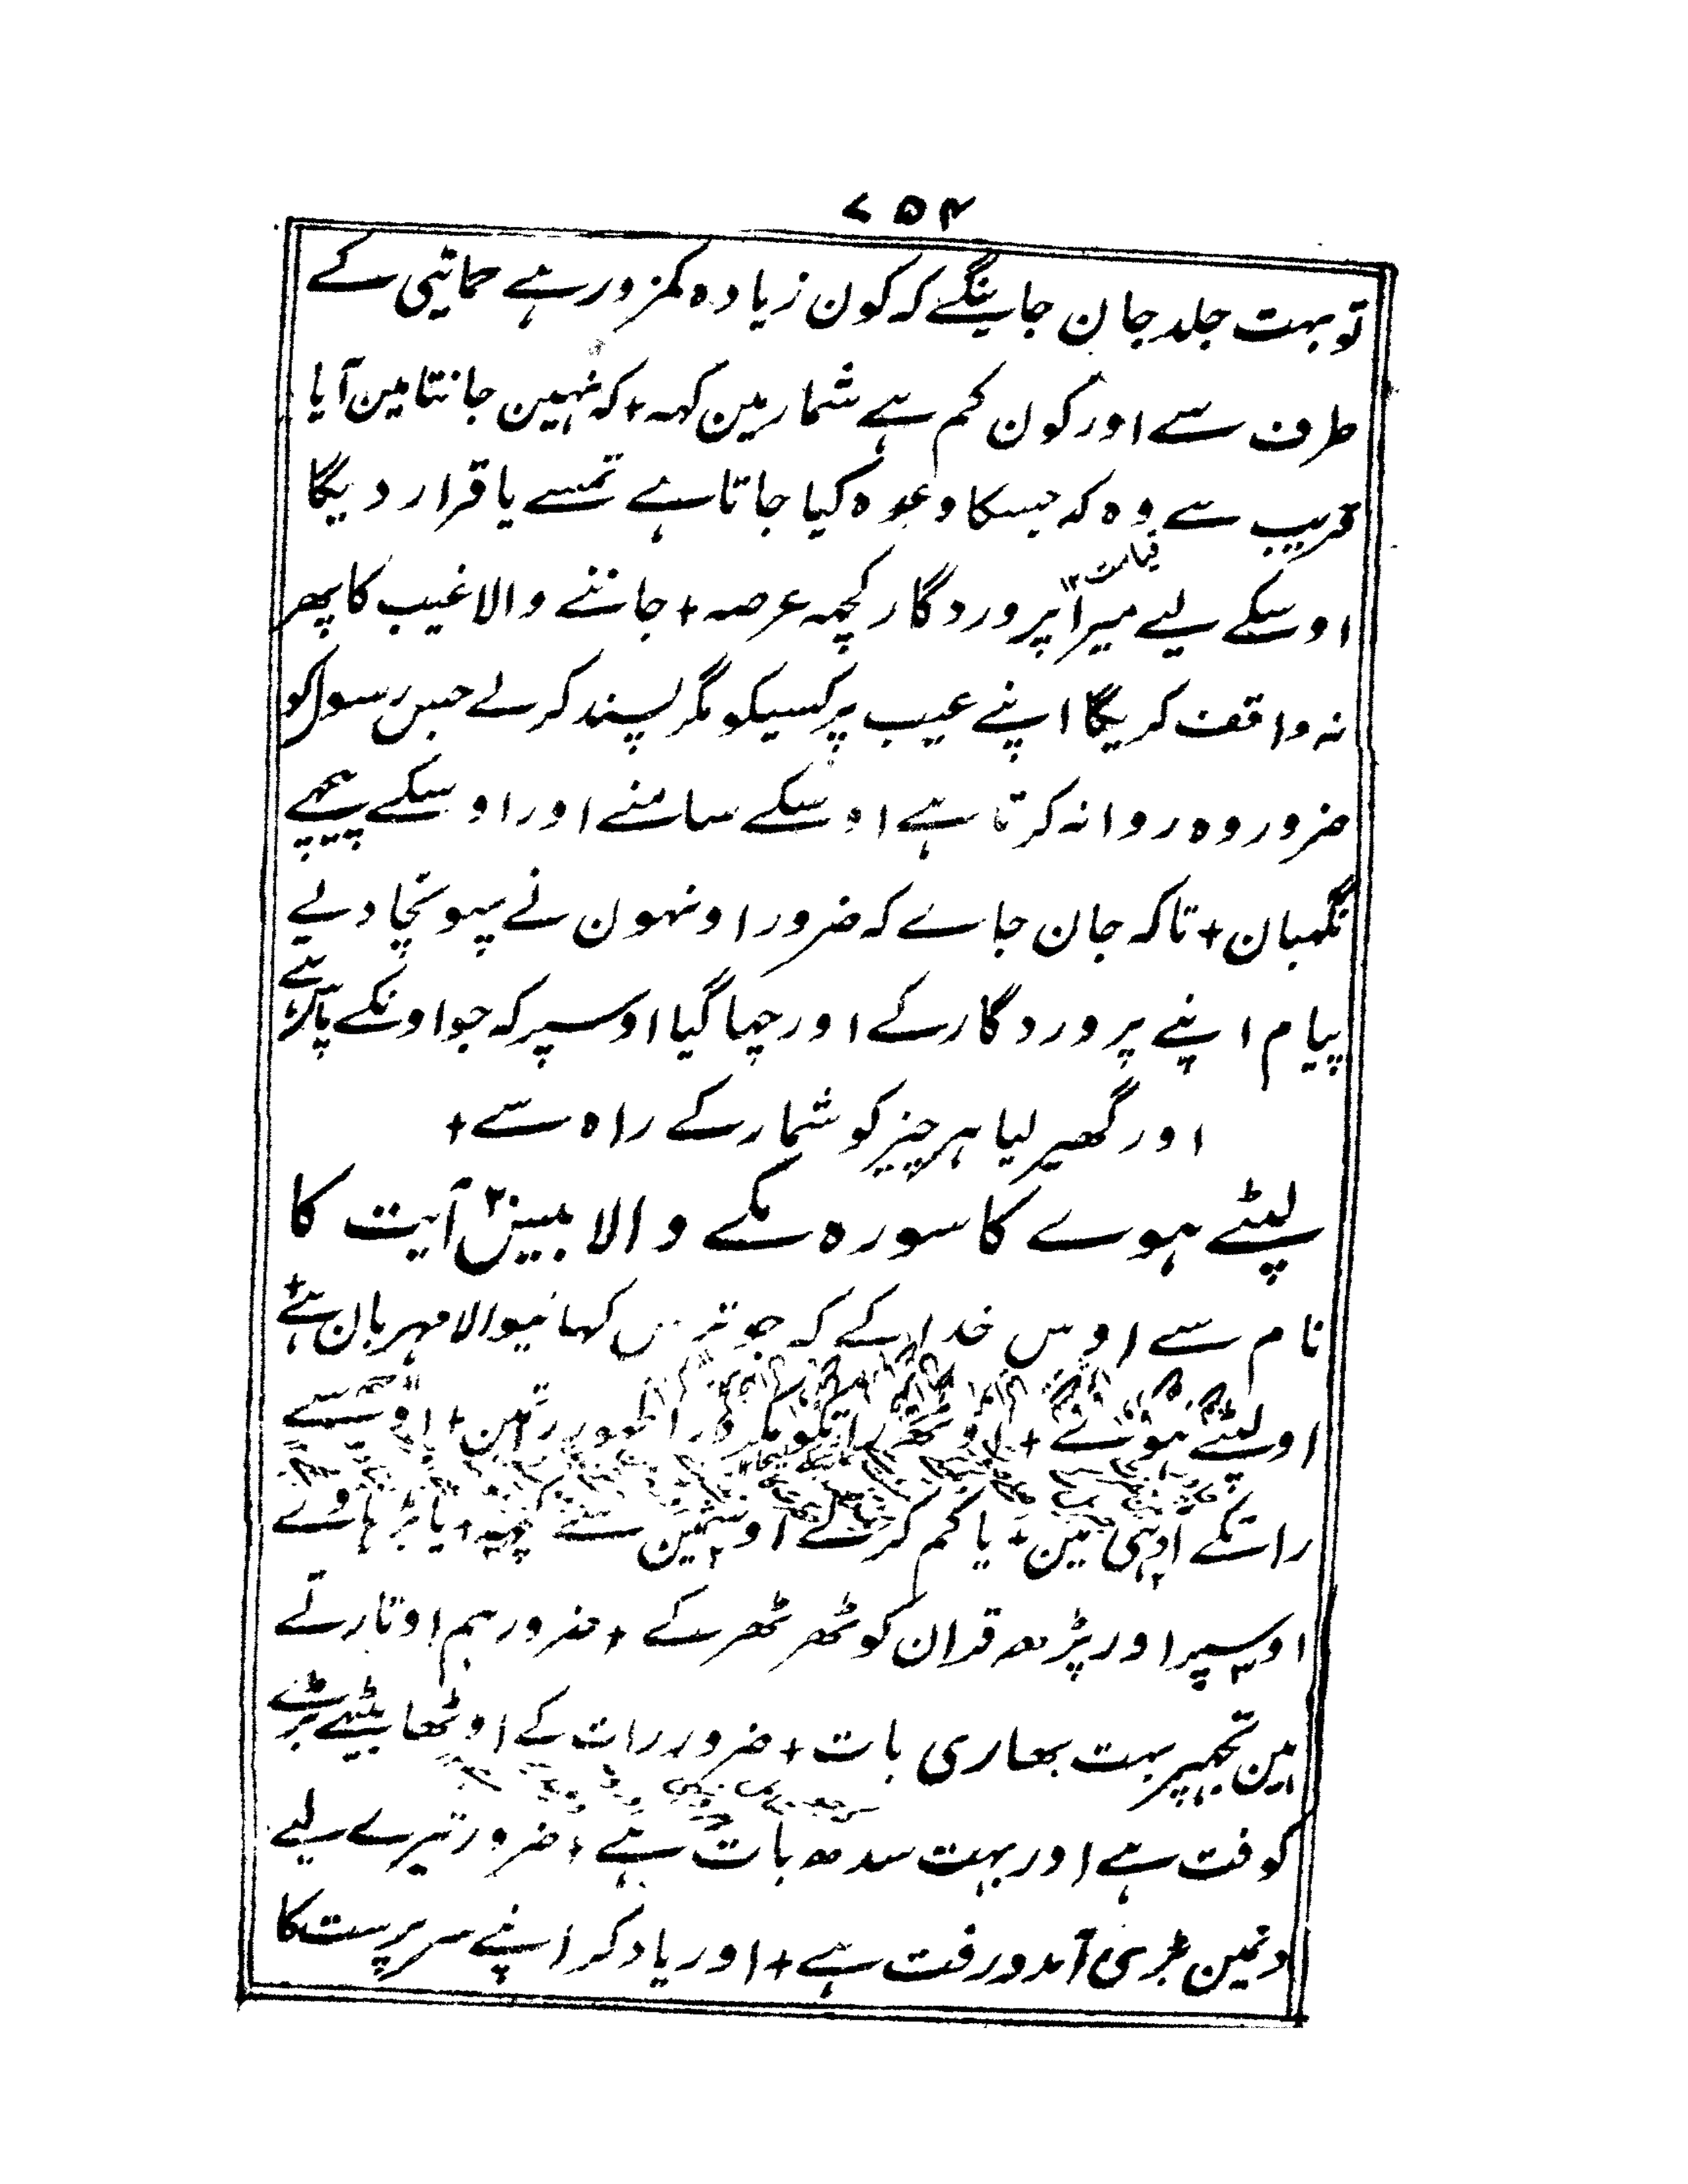 ۷۵۴
تو بہت جلد جان جاینگے کہ کون زیادہ کمزور ہے حمایتی کے
طرف سے اور کون کم ہے شمار مین کہہ + کہ نہین جانتا مین آیا
قریب ہے وہ کہ جسکا وعدہ کیا جاتا ہے تمسے یا قرار دیگا
اوسکے لیے میرا پروردگار کچھہ عرصہ + جاننے والا غیب کا پھر
نہ واقف کریگا اپنے غیب پر کسیکو مگر پسند کرلے جس رسول کو
ضرور وہ روانہ کرتا ہے اوسکے سامنے اور اوسکے پیچھے
نگہبان + تاکہ جان جاے کہ ضرور اونہون نے پہونچا دیے
پیام اپنے پروردگار کے اور چھا گیا اوسپر کہ جو اونکے پاس ہے
اور گھیر لیا ہر چیز کو شمار کے راہ سے +
لپٹے ہوے کا سورہ مکے والا بیس۲۰ آیت کا
نام سے اوس خدا کے کہ جو ترس کھانیوالا مہربان ہے +
او لپٹے ہوئے + اوٹھہ راتکو مگر ذرا
راتکے آدہی مین + یا کم کر لے اوسمین سے کچھہ + یا بڑہا دے
اوسپر اور پڑھہ قران کو ٹھر ٹھر کے + ضرور ہم اوتارتے
ہین تجھپر بہت بھاری بات + ضرور رات کے اوٹھا بیٹھے بڑے
کوفت ہے اور بہت سدھہ بات ہے + ضرور تیرے لیے
دنمین بڑی آمدورفت ہے + اور یاد کر اپنے سرپرست کا